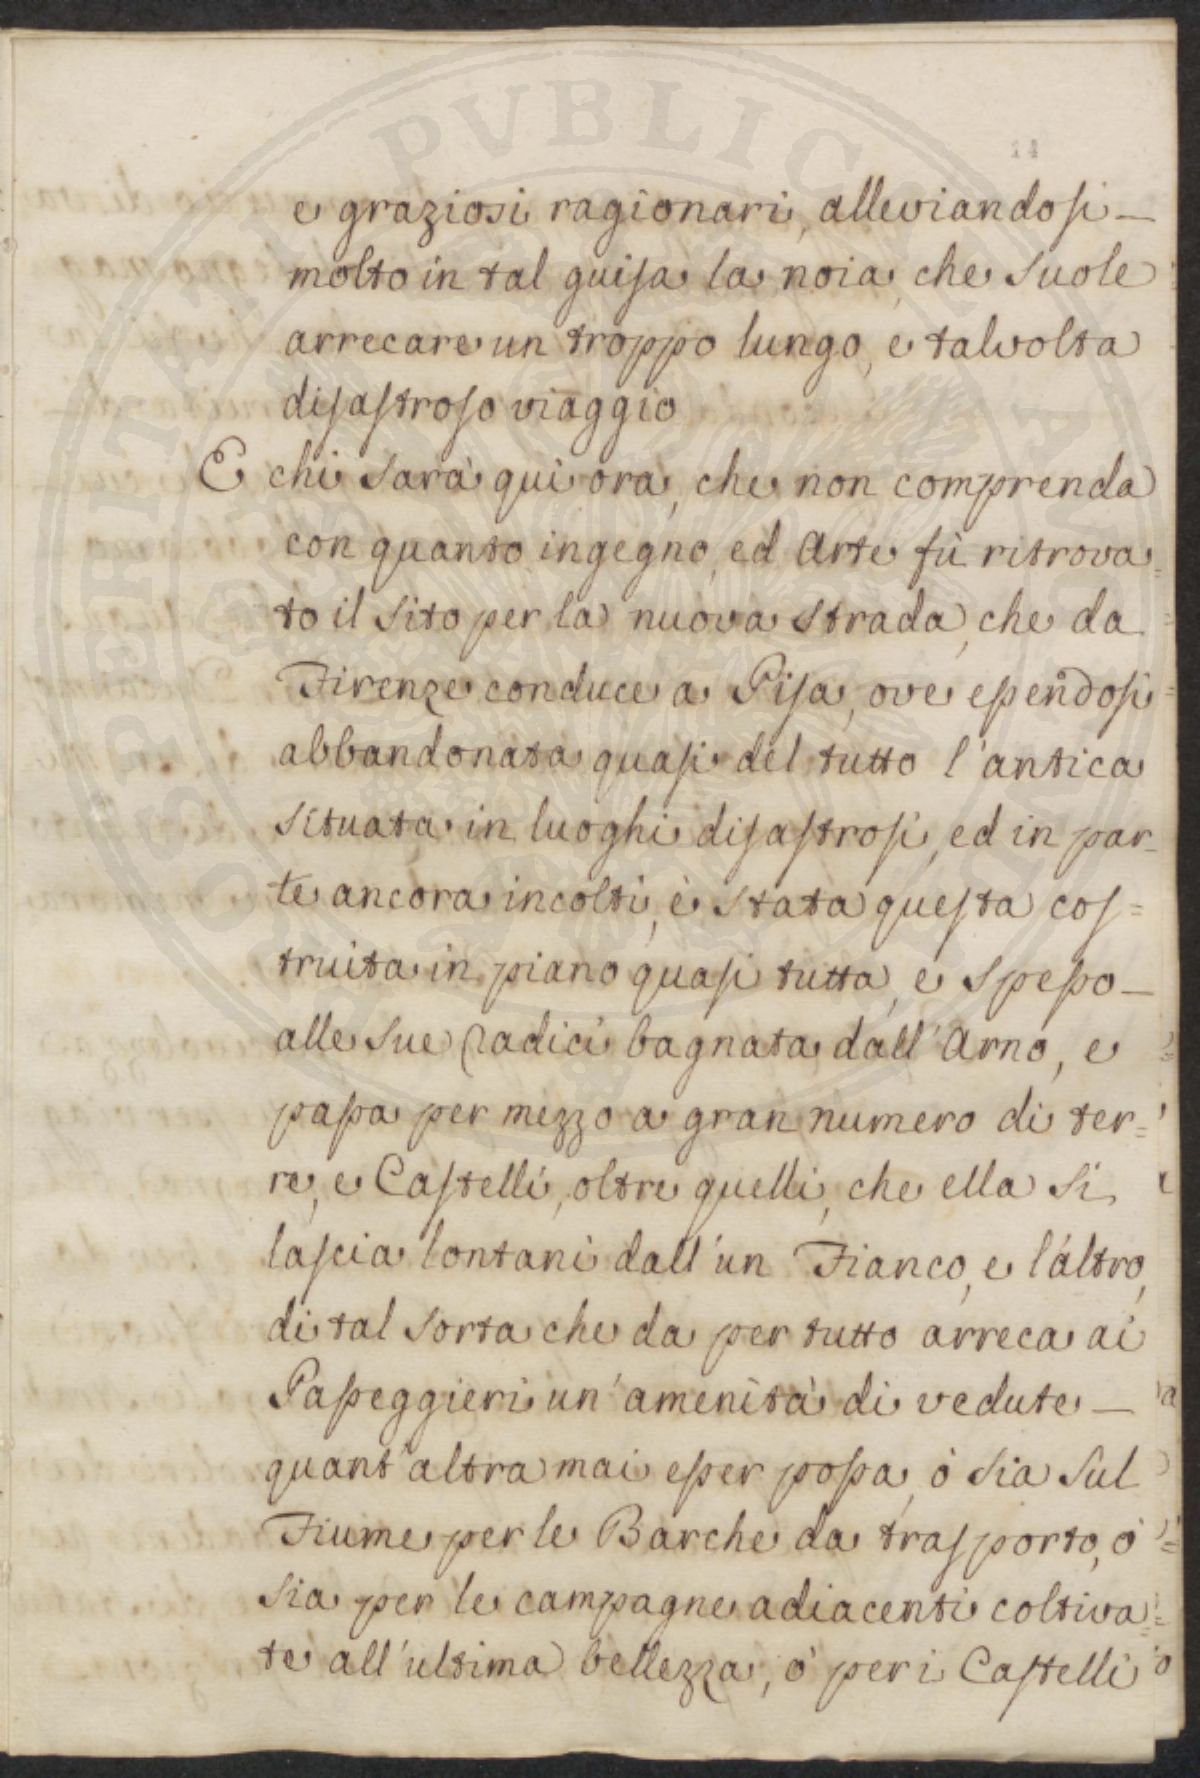 PVBLICAE VTILITATI
HOSPITALITATI
14
e graziosi ragionari, alleviandosi—
molto in tal guisa la noia, che suole
arrecare un troppo lungo, e talvolta
disastroso viaggio
E chi sarà quì ora, che non comprenda
con quanto ingegno, ed Arte fù ritrova=
to il sito per la nuova strada, che da
Firenze conduce a Pisa, ove essendosi
abbandonata quasi del tutto l'antica
situata in luoghi disastrosi, ed in par=
te ancora incolti, è stata questa cos=
truita in piano quasi tutta, e spesso—
alle sue radici bagnata dall'Arno, e
passa per mezzo a gran numero di ter=
re, e Castelli, oltre quelli, che ella si
lascia lontani dall'un Fianco, e l'altro,
di tal sorta che da per tutto arreca ai
Passeggieri un'amenità di vedute—
quant'altra mai esser possa, ò sia sul
Fiume per le Barche da trasporto, ò
sia per le campagne adiacenti coltiva=
te all'ultima bellezza, ò per i Castelli